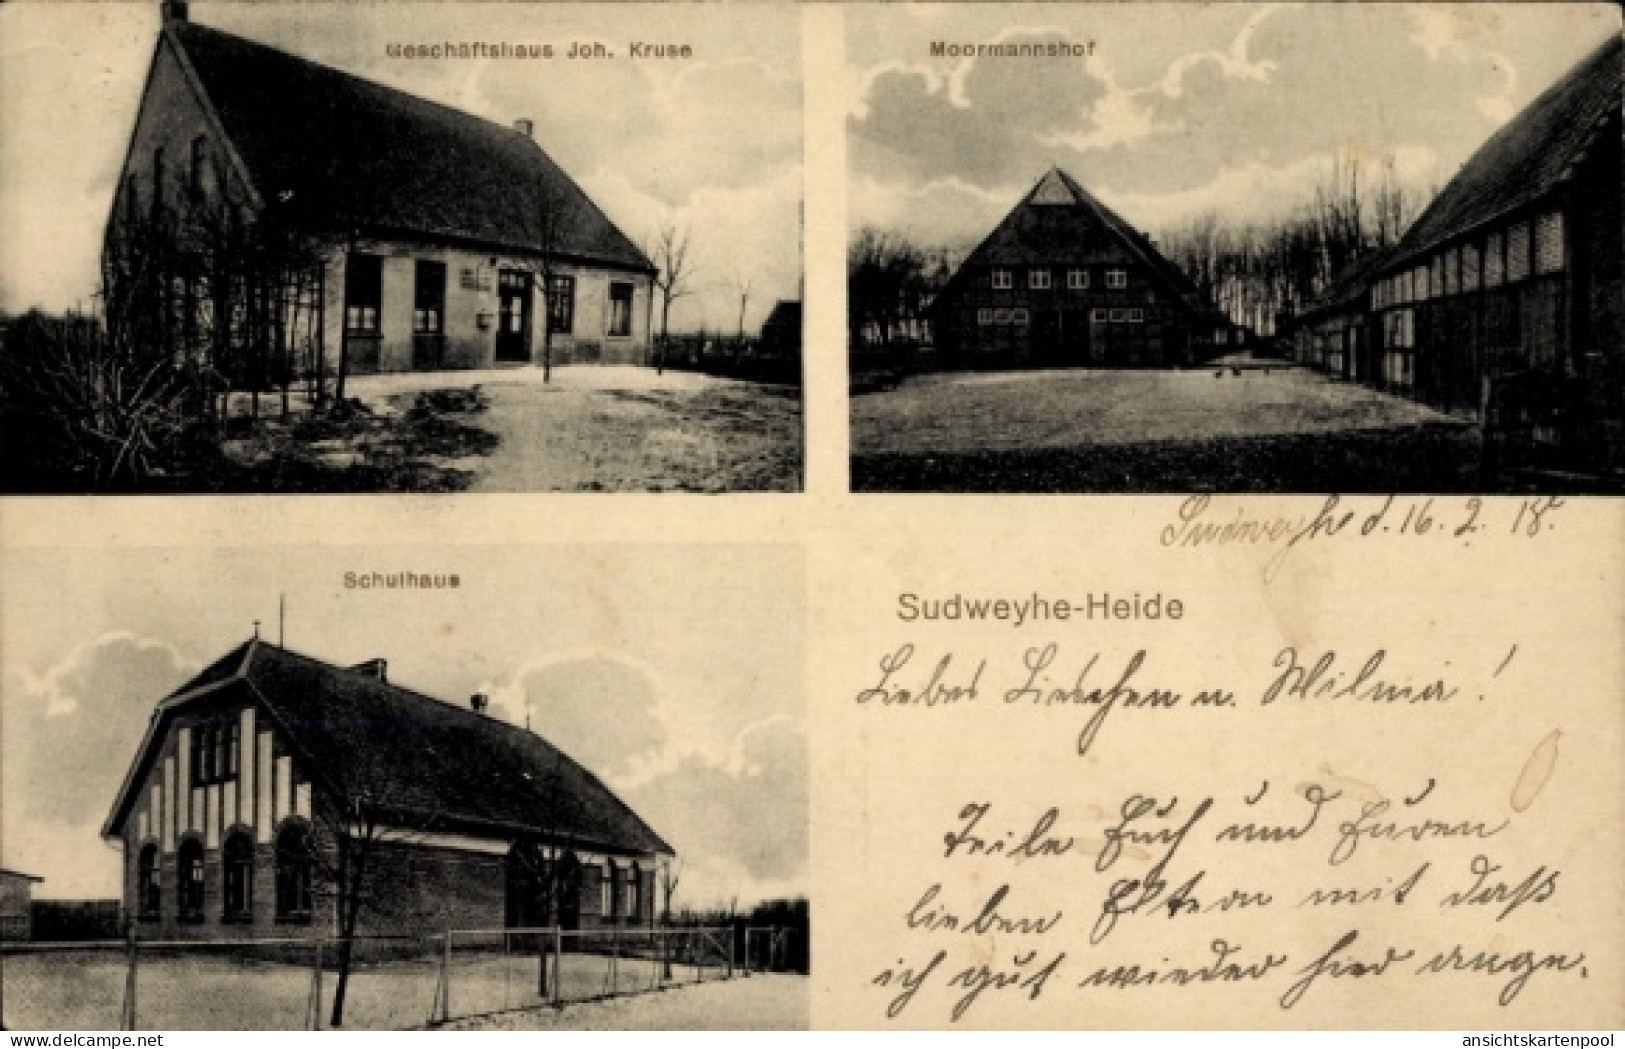 Geschäftshaus Joh. Kruse
Moormannshof
Schulhaus
Sudweyhe d. 16. 2. 18.
Sudweyhe-Heide
Liebes Lieschen u. Wilma!
Teile Euch und Euren
lieben Eltern mit daß
ich gut wieder hier ange-
www.delcampe.net
ansichtskartenpool